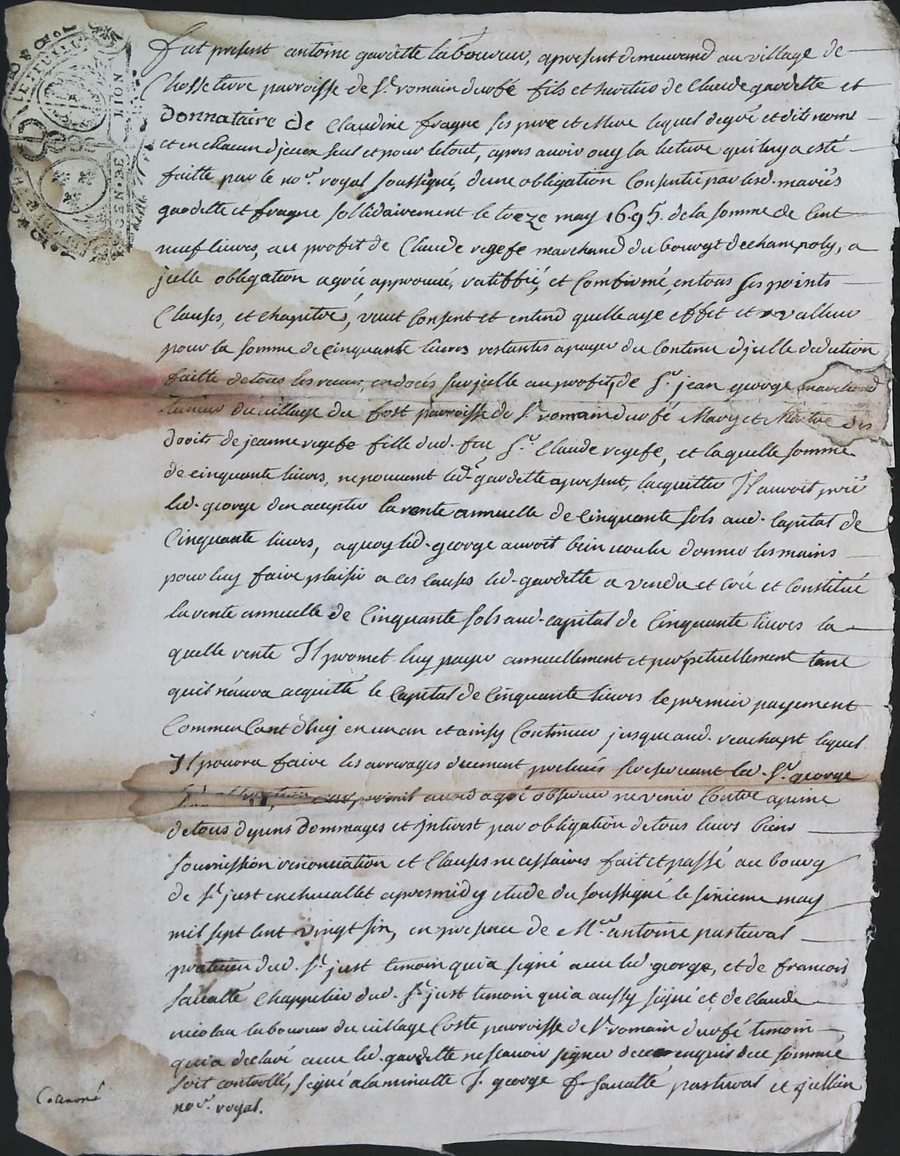 GEN. DE LION
Fut present antoine gardette laboureur, apresent demeurand au village de
Chosseterre parroisse de St. romain durfé fils et heritier de Claude gardette et
Donnataire de Claudine fragne ses pere et Mere lequel degré et dits noms
et en chacun djceux seul et pour letout, apres avoir ouy la lecture quiluy a esté
faitte par le nore. royal soussigné, dune obligation Consentie par lesd. mariés
gardette et fragne sollidairement le treze may 1695. de la somme de Cent
neuf livres, au profit de Claude regefe marchand du bourgt dechampoly, a
jcelle obligation agréé approuvé, ratiffié, et Comfirmé, entous ses points
Clauses, et Chapitres, veut Consent et entend quelle aye effet et valleur
pour la somme decinquante livres restantes apayer du Contenu djcelle deduction
faitte detous les receus, endocés sur jcelle au profit, de Sr. jean george marchand
du village du fost parroisse de St. romain durfé Mary et Maitre des
droits de jeanne regefe fille dud. feu Sr. Claude regefe, et laquelle somme
de cinquante livres, nepouvant led. gardette apresent, lacquitter Jl auroit prié
led. george den accepter la rente annuelle de Cinquante sols aud. Capital de
Cinquante livres, aquoy led. george auroit bien voulu donner les mains
pour luy faire plaisir a ces Causes led. gardette a vendu et créé et Constitué
la rente annuelle de Cinquante sols aud. capital de Cinquante livres la
quelle rente Jl promet luy payer annuellement et perpetuellement tant
quil naura acquitté le Capital de Cinquante livres le premier payement
Commencant dhuy en un an et ainsy Continuer jusque aud. reachapt lequel
Jl pourra faire les arrerages deument prealués se reservant led. Sr. george
obserer ne venir Contre apeine
detous depens dommages et jnterest par obligation detous leurs biens
soumission renonciation et Clauses necessaires fait et passé au bourg
de St. just enchevallet apresmidy etude du soussigné le sixieme may
mil sept cent vingt six, en presence de Me. antoine pastural
praticien dud. St. just temoin qui a signé avec led george, et de francois
sauatté Chappelier dud. St. just temoin qui a aussy signé et de Claude
nicolas laboureur du village Coste parroisse de St. romain durfé temoin
qui a declaré avec led. gardette ne scavoir signer de ce enquis de ce sommé
soit controllé, signé a la minutte J. george f. sauatté pastural et jullien
nore. royal.